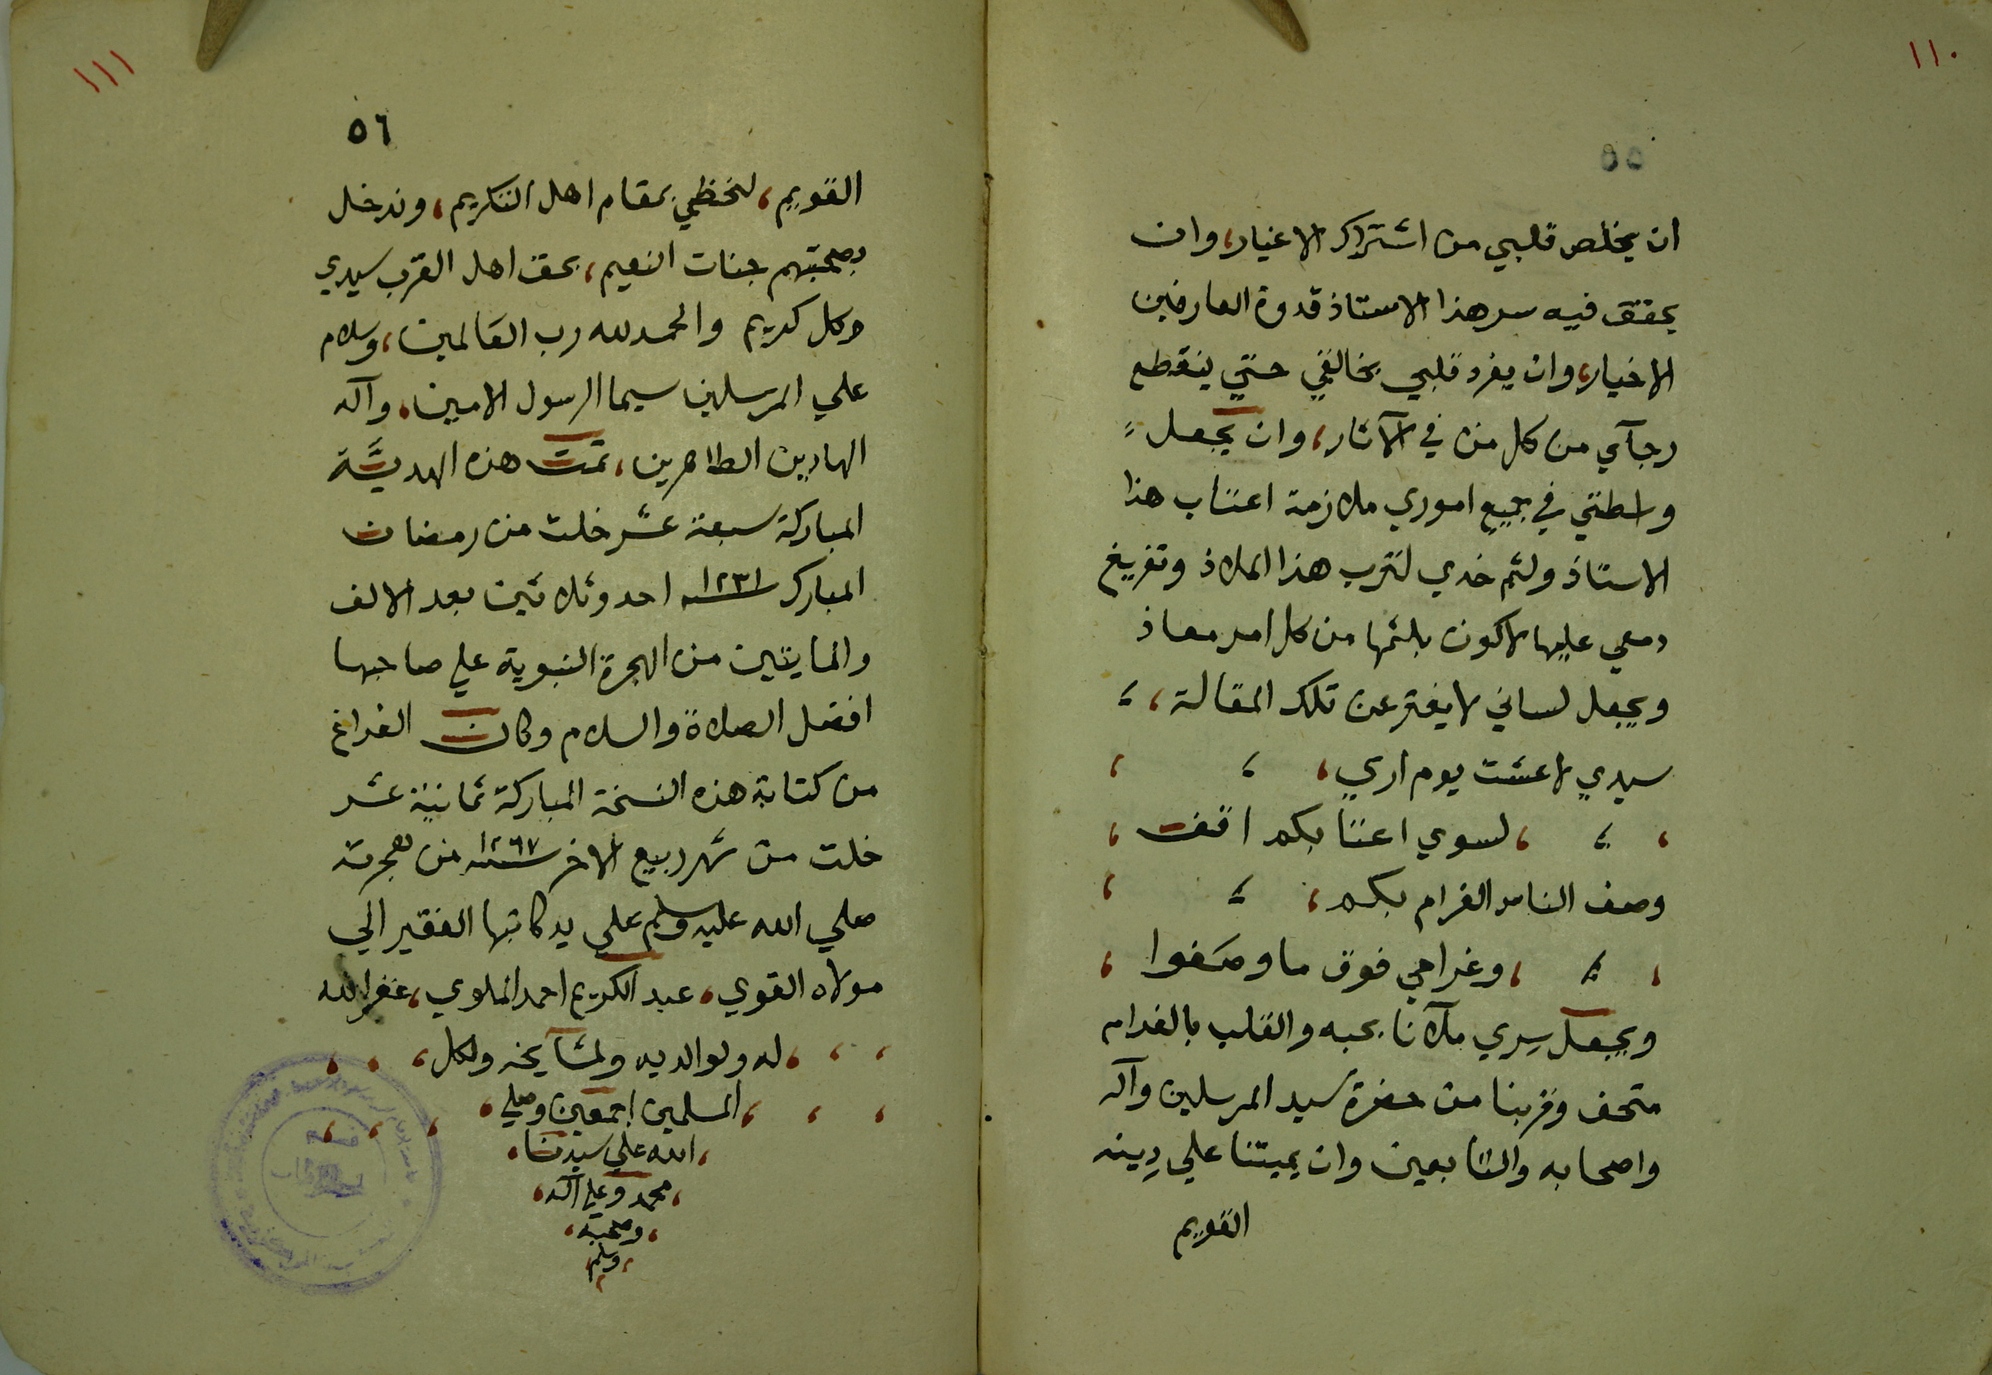 ١١٠
٥٥
ان يخلص قلبي من اشتراك الاغيار، وان
يحقق فيه سر هذا الاستاذ قدوة العارفين
الاخيار، وان يفرد قلبي بخالقي حتي ينقطع
رجآي من كل من في الآثار، وان يجعل
واسطتي في جميع اموري ملازمة اعتاب هذا
الاستاذ ولثم خدي لترب هذا الملاذ وتفريغ
دمعي عليها لاكون بلثمها من كل امر معاذ
ويجعل لساني لا يفتر عن تلك المقالة،
سيدي لا عشت يوم اري،
، لسوي اعتابكم اقف ،
وصف الناس الغرام بكم،
، وغرامي فوق ما وصفوا ،
ويجعل سِري ملآنا بحبه والقلب بالغرام
متحف وقربنا من حضرة سيد المرسلين وآله
واصحابه والتابعين وان يميتنا علي دِينه
القويم
١١١
٥٦
القويم، لنحظي بمقام اهل التكريم، وندخل
بصحبتهم جنات النعيم، بحق اهل القرب سيدي
وكل كريم والحمد لله رب العَالمين، وسلام
علي المرسلين سيما الرسول الامين، وآله
الهادين الطاهرين، تمت هذه الهديَّة
المباركة سبعة عشر خلت من رمضان
المبارك سنة ١٢٣١ احد وثلاثين بعد الالف
والمايتين من الهجرة النبوية علي صاحبها
افضل الصلاة والسلام وكان الفراغ
من كتابة هذه النسخة المباركة ثمانية عشر
خلت من شهر ربيع الاخر سنة ١٢٦٧ من هجرته
صلي الله عليه وسلم علي يد كاتبها الفقير الي
مولاه القوي، عبد الكريم احمد الملوي، غفر الله
، له ولوالديه ولمشآيخه ولكل ،
، المسلمين اجمعين وصلي ،
، الله علي سيدنا ،
، محمد وعلي آله ،
، وصحبه ،
، وسلم ،